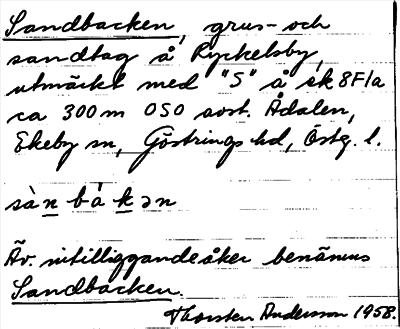 Sandbacken, grus- och
sandtag å Ryckelsby,
utmärkt med "S" å ek 8F1a
ca 300 m OSO avst. Ådalen,
Ekeby sn, Göstrings hd, Östg. l.
sàn bákən
Äv. intilliggande åker benämns
Sandbacken.
Thorsten Andersson 1958.